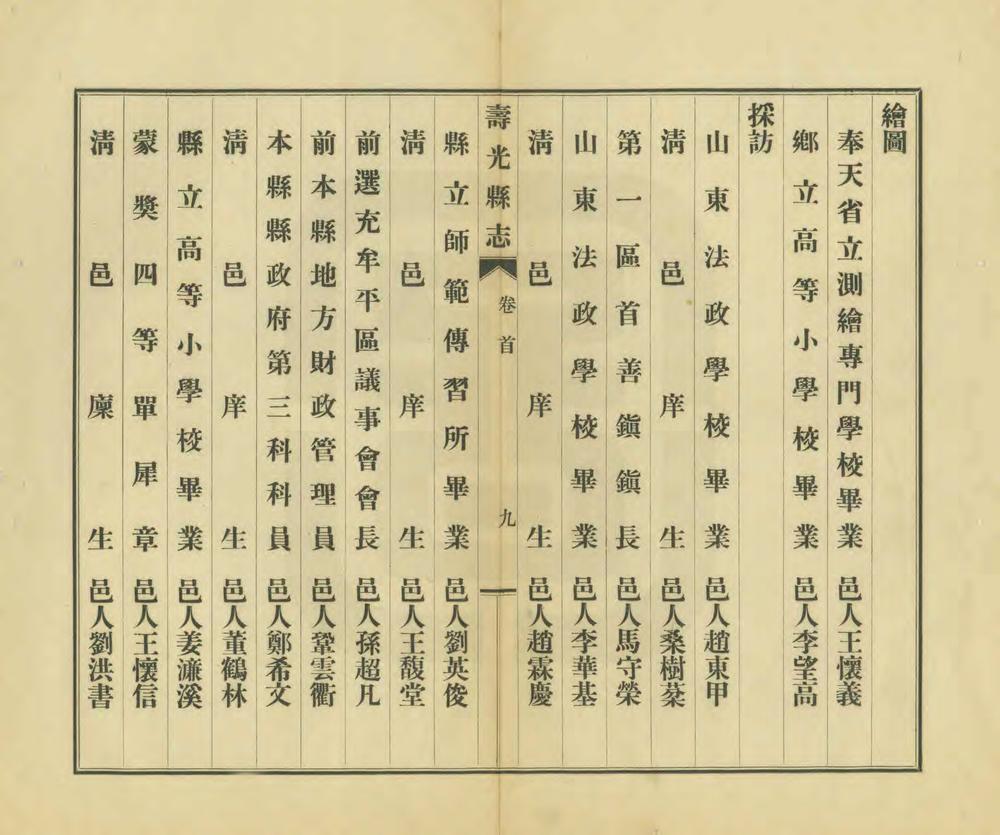 繪圖
奉天省立測繪專門學校畢業 邑人王懷義
鄉立高等小學校畢業 邑人李望高
採訪
山東法政學校畢業 邑人趙東甲
淸邑庠生 邑人桑樹棻
第一區首善鎭鎭長 邑人馬守榮
山東法政學校畢業 邑人李華基
淸邑庠生 邑人趙霖慶
壽光縣志 卷首 九
縣立師範傳習所畢業 邑人劉英俊
淸邑庠生 邑人王馥堂
前選充牟平區議事會會長 邑人孫超凡
前本縣地方財政管理員 邑人鞏雲衢
本縣縣政府第三科科員 邑人鄭希文
淸邑庠生 邑人董鶴林
縣立高等小學校畢業 邑人姜濂溪
蒙獎四等單犀章 邑人王懷信
淸邑廩生 邑人劉洪書